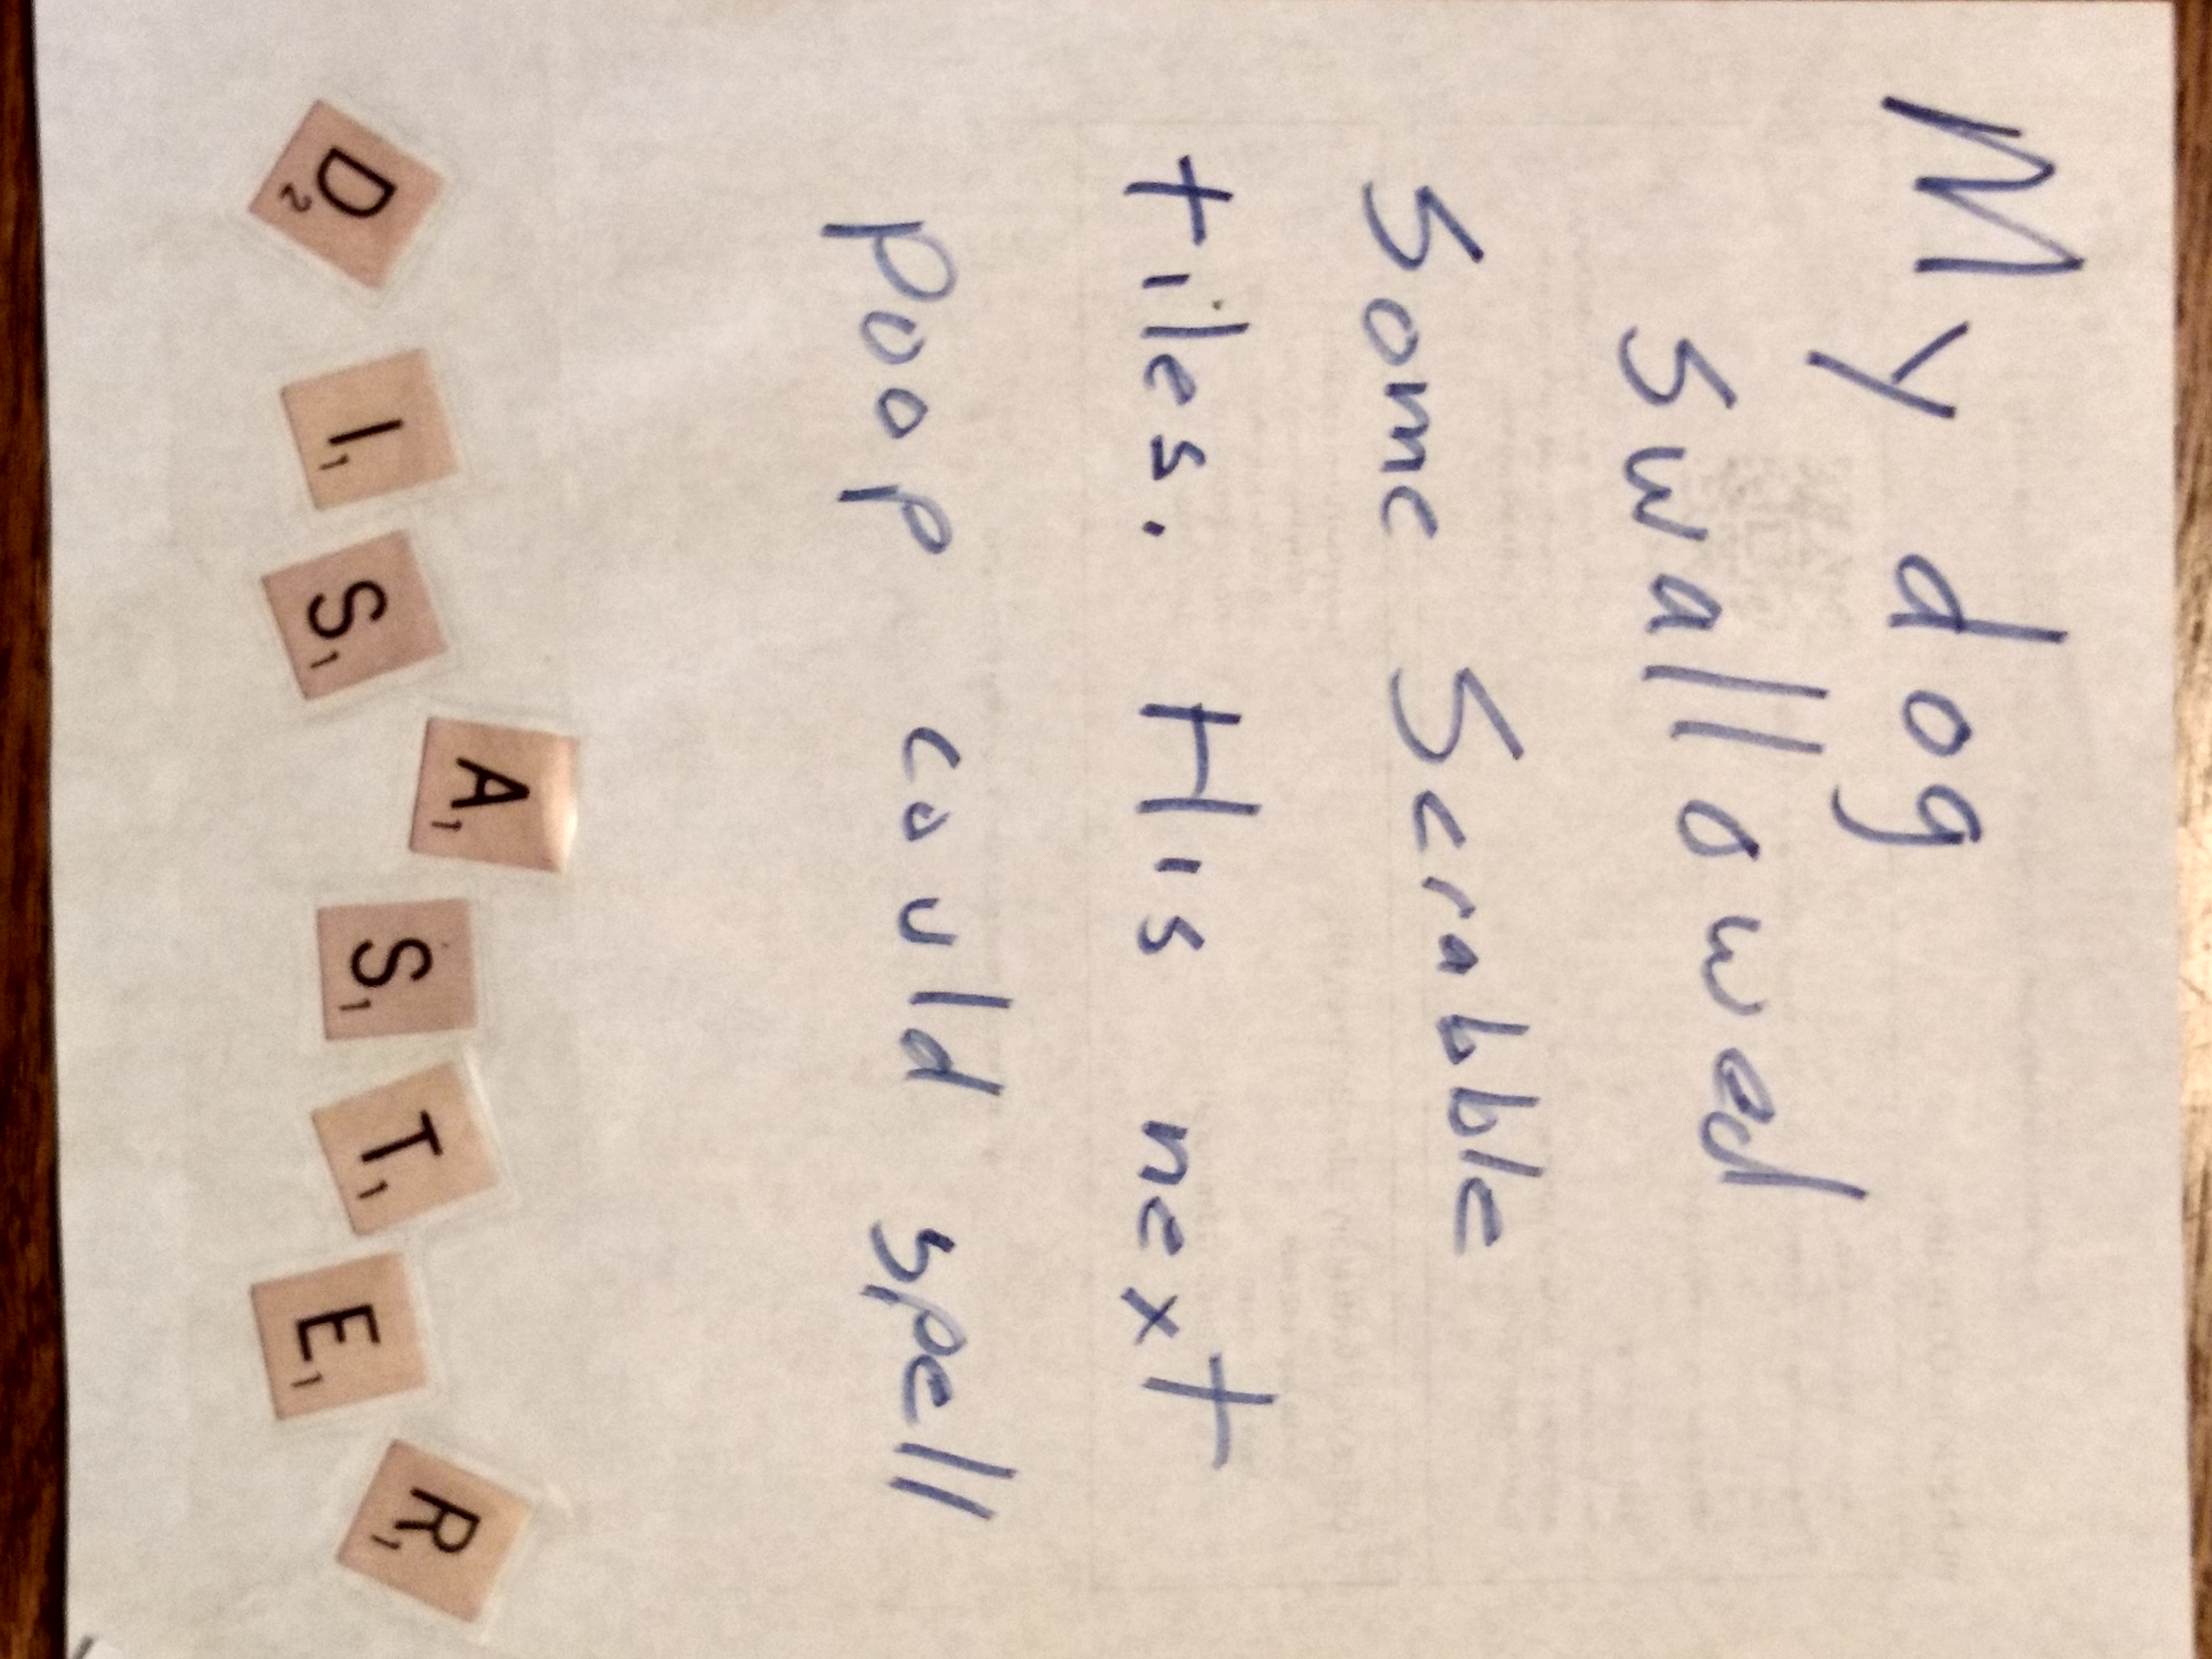 My dog
swallowed
some Scrabble
tiles. His next
poop could spell
D2 I1 S1 A1 S1 T1 E1 R1